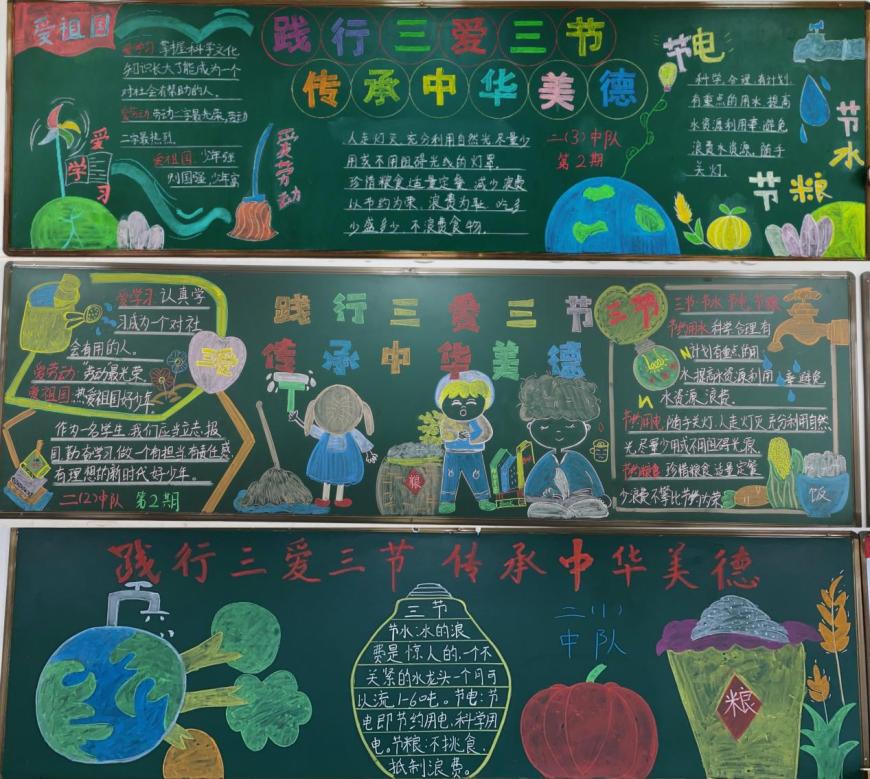 爱祖国
践行三爱三节
传承中华美德
爱学习 掌握科学文化
知识长大了能成为一个
对社会有帮助的人。
爱劳动 劳动二字最光荣,劳动
二字最热烈.
爱祖国 少年强
则国强,少年富
爱学习
爱劳动
人走灯灭.充分利用自然光.尽量少
用或不用阻碍光线的灯罩.
珍惜粮食适量定餐.减少浪费
以节约为荣.浪费为耻.吃多
少盛多少.不浪费食物.
二(3)中队
第2期
节电
科学合理.有计划
有重点的用水.提高
水资源利用率.避免
浪费水资源.随手
关灯.
节水
节粮
践行三爱三节
传承中华美德
爱学习:认真学
习成为一个对社
会有用的人。
爱劳动:劳动最光荣
爱祖国:热爱祖国好少年.
三爱
作为一名学生,我们应当立志,报
国,勤奋学习,做一个有担当有责任感
有理想的新时代好少年。
二(2)中队 第2期
粮
三节
三节:节水 节电 节粮
节约用水 科学合理有
计划有重点的用
水.提高水资源利用率避免
水资源浪费.
节约用电.随手关灯.人走灯灭.充分利用自然
光.尽量少用或不用阻碍光源.
节约粮食 珍惜粮食 适量定餐
少浪费不攀比节约为荣
饭
践行三爱三节 传承中华美德
三节
节水:水的浪
费是惊人的,一个不
关紧的水龙头一个月可
以流1-6吨。节电:节
电即节约用电,科学用
电。节粮:不挑食,
抵制浪费。
二(1)
中队
粮